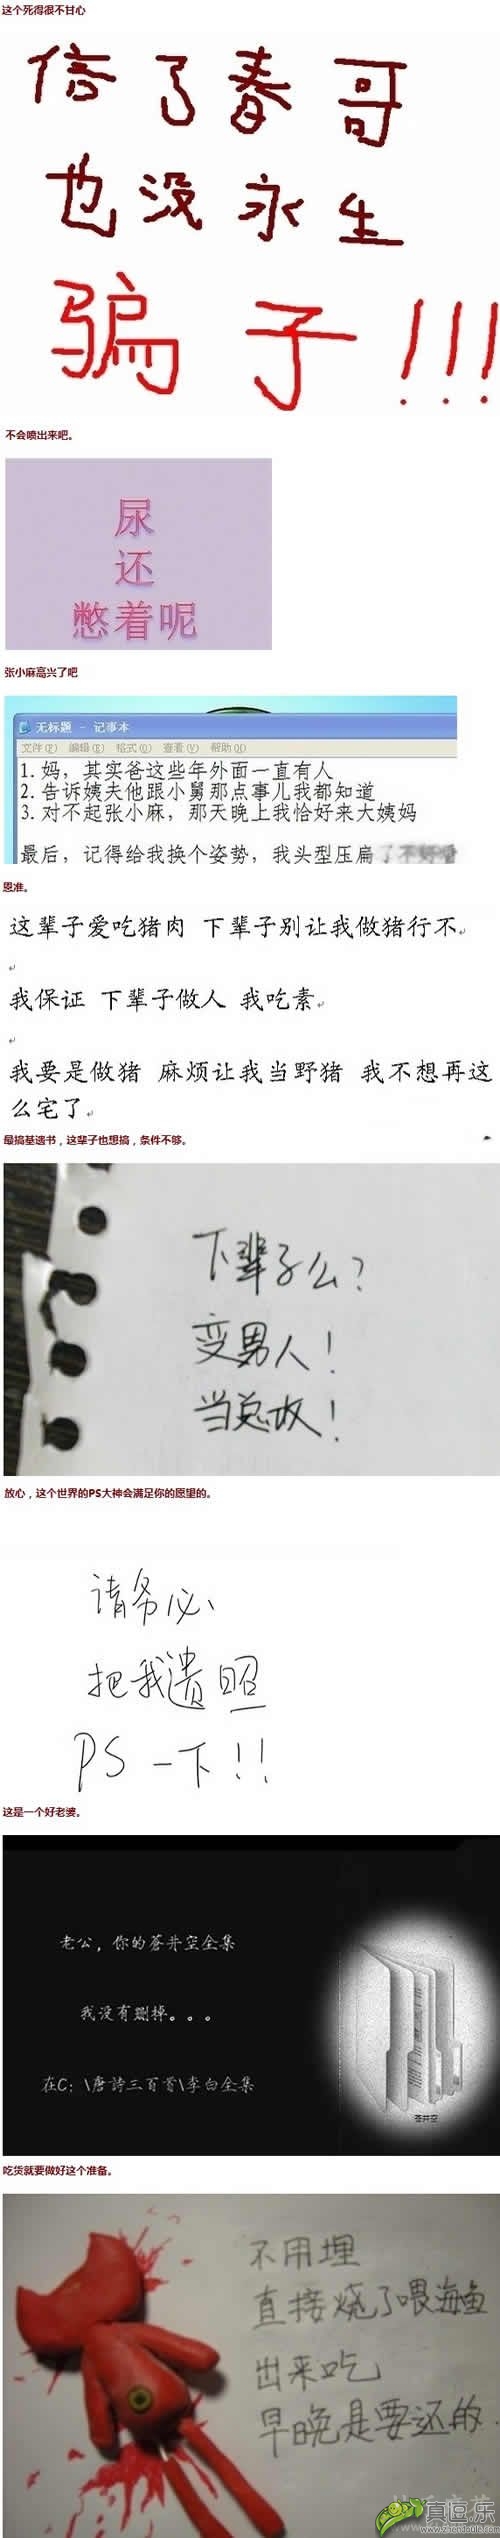 这个死得很不甘心
信了春哥
也没永生
骗子!!!
不会喷出来吧。
尿
还
憋着呢
张小麻高兴了吧
无标题 - 记事本
文件(F) 编辑(E) 格式(O) 查看(V) 帮助(H)
1. 妈，其实爸这些年外面一直有人
2. 告诉姨夫他跟小舅那点事儿我都知道
3. 对不起张小麻，那天晚上我恰好来大姨妈
最后，记得给我换个姿势，我头型压扁
恩准。
这辈子爱吃猪肉 下辈子别让我做猪行不
我保证 下辈子做人 我吃素
我要是做猪 麻烦让我当野猪 我不想再这
么宅了
最搞基遗书，这辈子也想搞，条件不够。
下辈子么?
变男人!
当总攻!
放心，这个世界的PS大神会满足你的愿望的。
请务必
把我遗照
PS一下!!
这是一个好老婆。
老公，你的苍井空全集
我没有删掉。。。
在C：\唐詩三百首\李白全集
苍井空
吃货就要做好这个准备。
不用埋
直接烧了喂海鱼
出来吃
早晚是要还的.
真逗乐
www.zhendoule.com